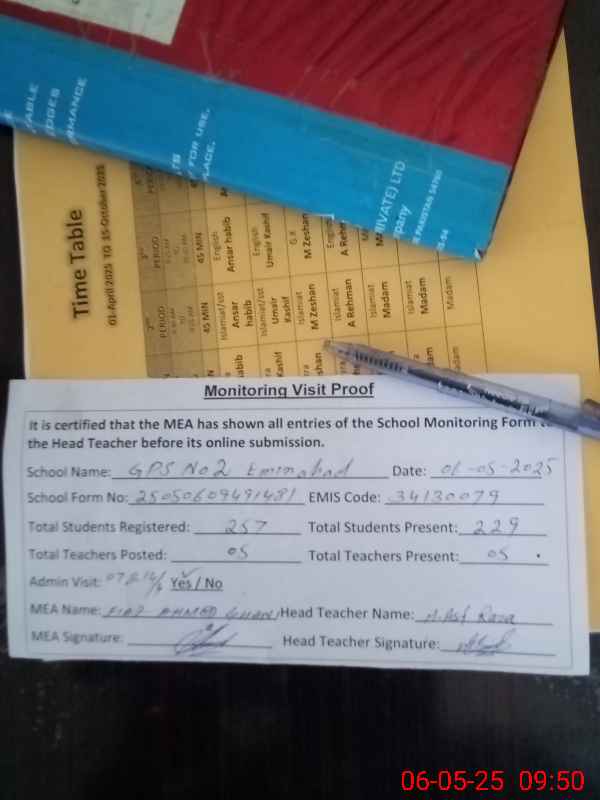 ABLE
DGES
RMANCE
Y FOR USE,
PLACE,
RIVATE) LTD
mpany
E PAKISTAN 54760
Time Table
01-April 2025 TO 15-October 2025
3rd
PERIOD
45 MIN
English
Ansar habib
English
Umair Kashif
G.K
M Zeshan
English
A Rehm
2nd
PERIOD
45 MIN
Islamiat/sst
Ansar
habib
Islamiat/sst
Umair
Kashif
Islamiat
M Zeshan
Islamiat
A Rehman
Islamiat
Madam
Islamiat
Madam
Madam
abib
Kashif
shan
dam
adam
Monitoring Visit Proof
It is certified that the MEA has shown all entries of the School Monitoring Form to
the Head Teacher before its online submission.
School Name: GPS No 2 Eminabad Date: 06-05-2025
School Form No: 25050609491481 EMIS Code: 34130079
Total Students Registered: 257 Total Students Present: 229
Total Teachers Posted: 05 Total Teachers Present: 05
Admin Visit: Yes / No
MEA Name: AHMED GHANI Head Teacher Name: M. Asf Raza
MEA Signature: Head Teacher Signature:
06-05-25 09:50